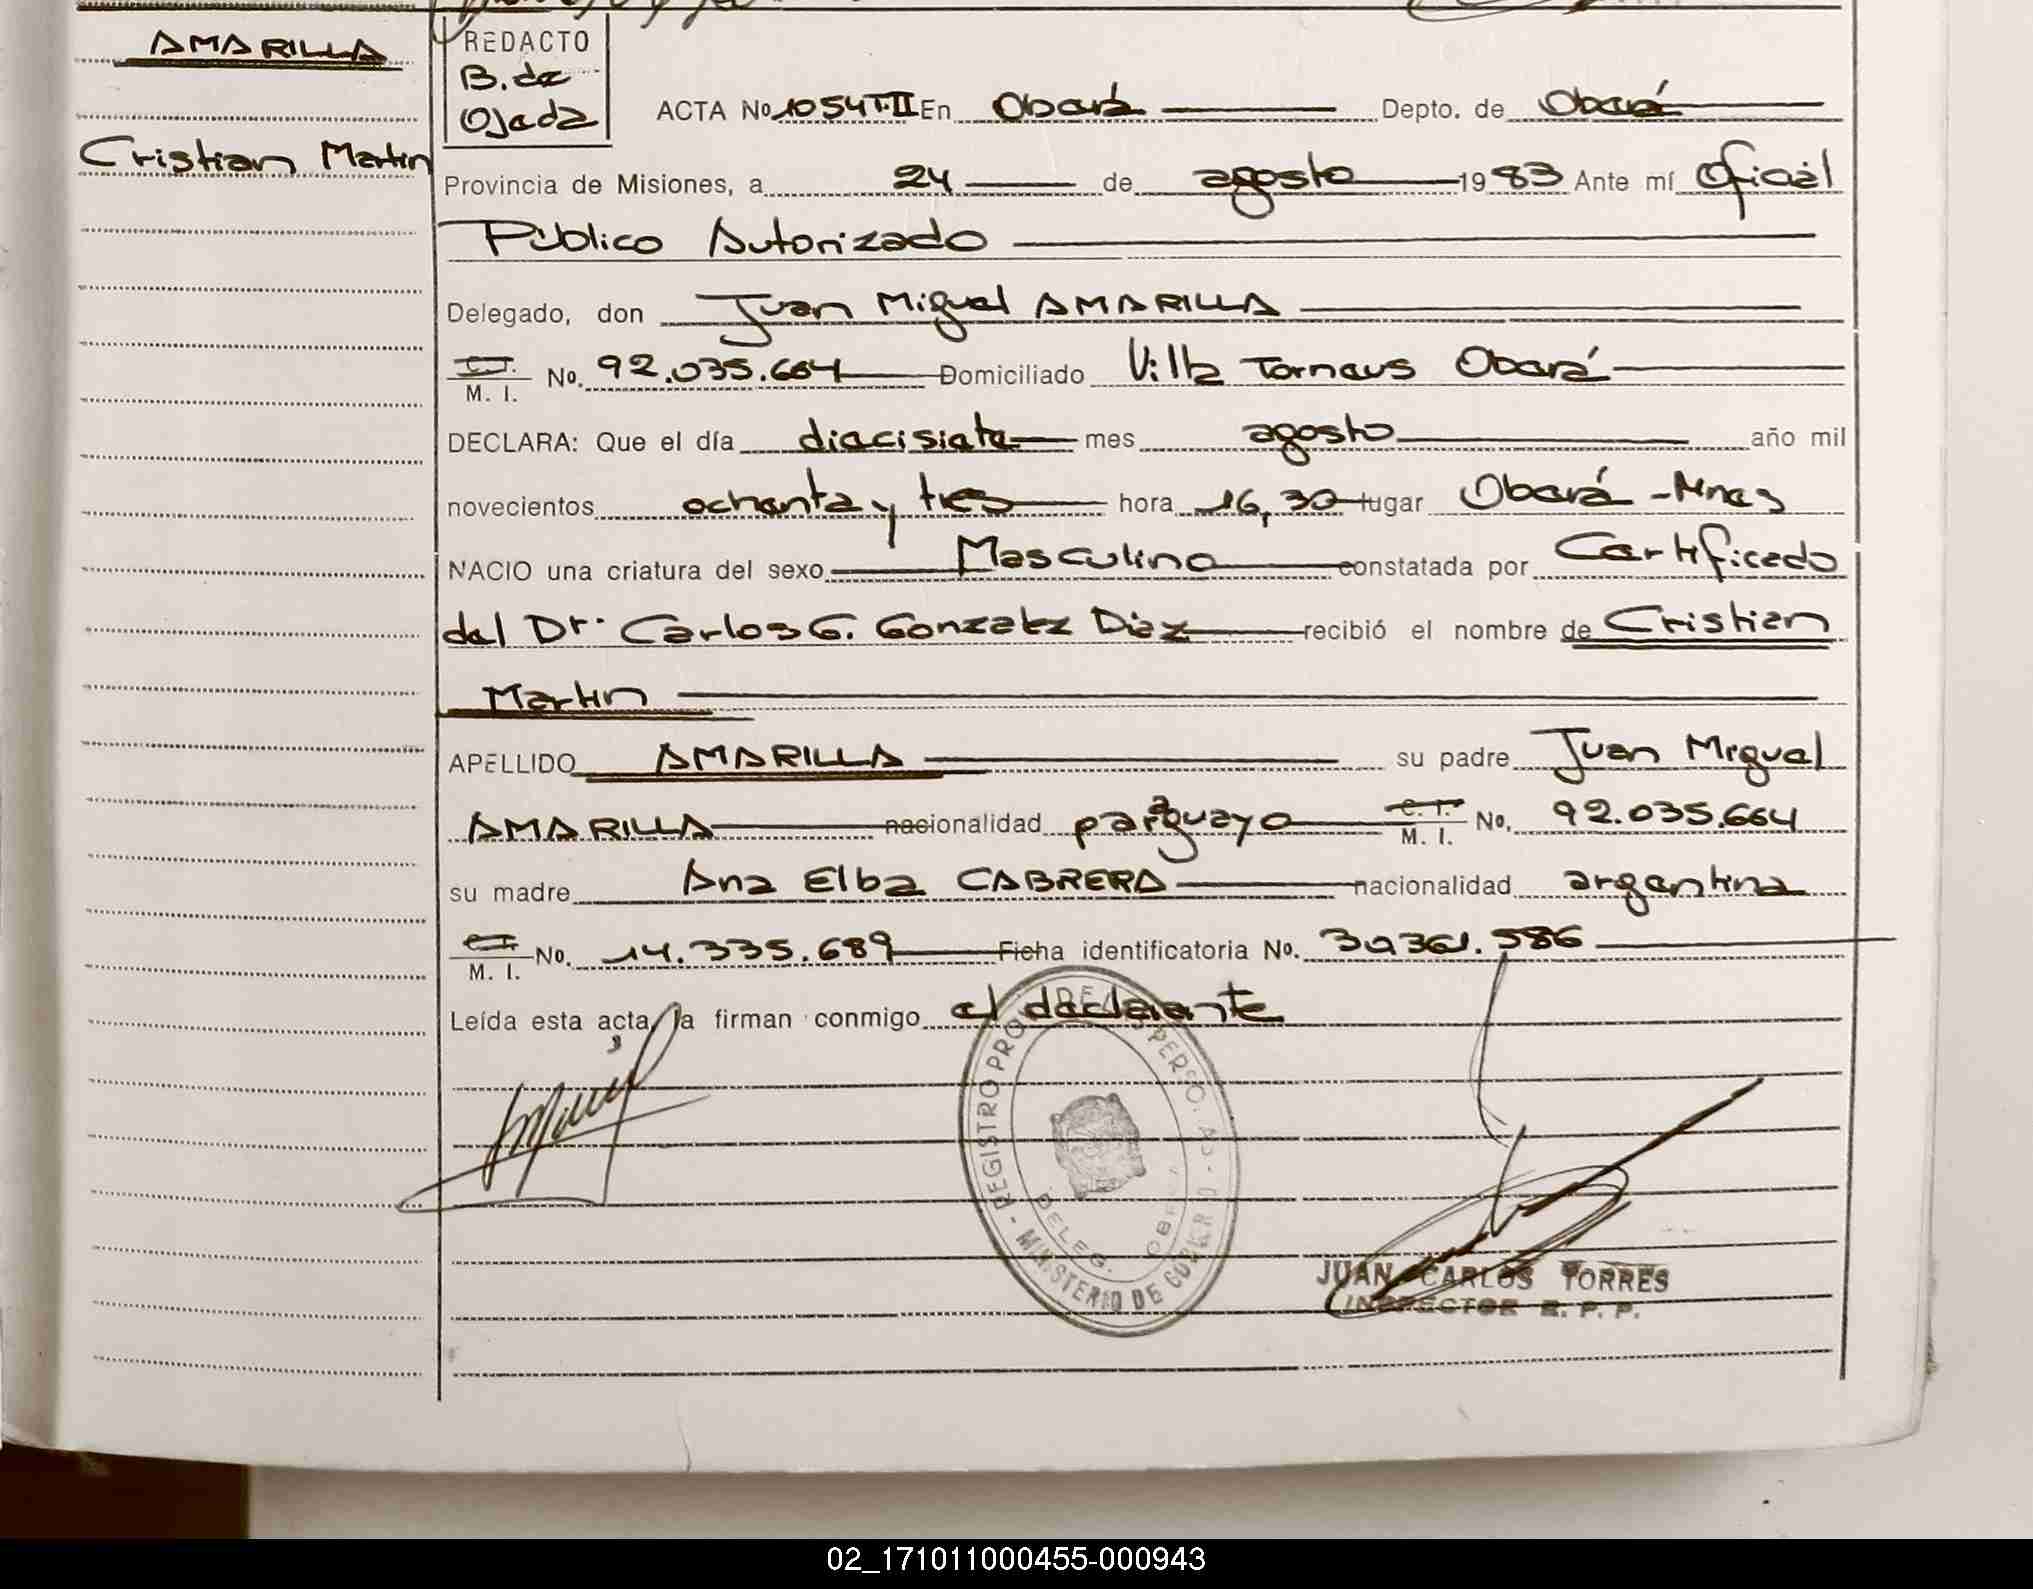 AMARILLA
Cristian Martin
REDACTO
B. de
Ojeda
ACTA No 1054 T.II En Oberá Depto. de Oberá
Provincia de Misiones, a 24 de agosto 1983 Ante mí Oficial
Público Autorizado
Delegado, don Juan Miguel AMARILLA
C.I. M. I. No. 92.035.664 Domiciliado Villa Torneus Oberá
DECLARA: Que el día diecisiete mes agosto año mil
novecientos ochenta y tres hora 16,30 lugar Oberá - Mnes
NACIO una criatura del sexo Masculino constatada por Certificado
del Dr. Carlos G. Gonzalez Diaz recibió el nombre de Cristian
Martin
APELLIDO AMARILLA su padre Juan Miguel
AMARILLA nacionalidad paraguayo C. I. M. I. No. 92.035.664
su madre Ana Elba CABRERA nacionalidad argentina
C.I. M. I. No. 14.335.689 Ficha identificatoria No. 30.361.586
Leída esta acta, la firman conmigo el declarante
REGISTRO PRO DE PERSO.
MINISTERIO DE GOBIERNO
DELEG. OBERA
JUAN CARLOS TORRES
INSPECTOR R. P. P.
02_171011000455-000943